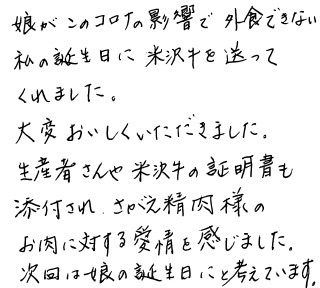 娘がこのコロナの影響で外食できない
私の誕生日に米沢牛を送って
くれました。
大変おいしくいただきました。
生産者さんや米沢牛の証明書も
添付され、さがえ精肉様の
お肉に対する愛情を感じました。
次回は娘の誕生日にと考えています。